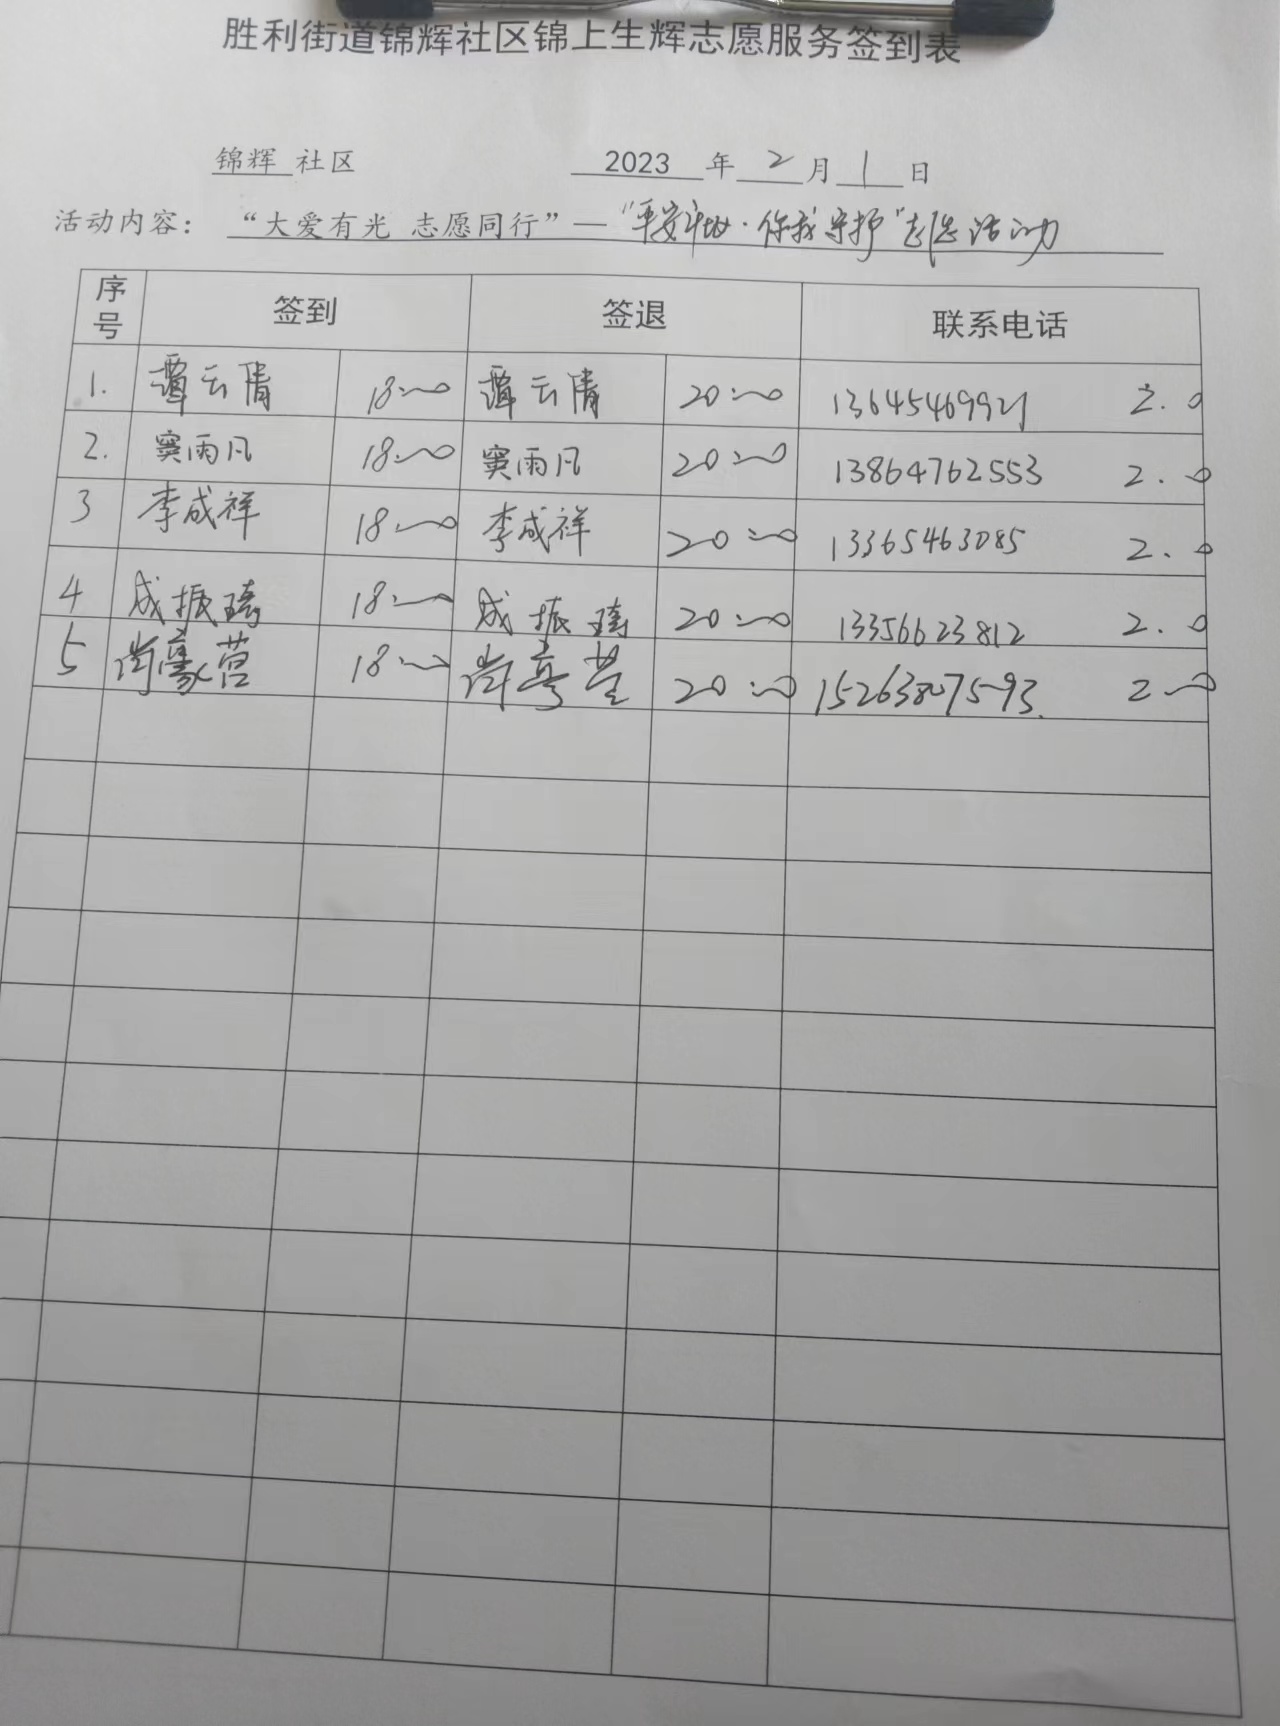 胜利街道锦辉社区锦上生辉志愿服务签到表
锦辉 社区 2023 年 2 月 1 日
活动内容：“大爱有光 志愿同行”—“平安 · 你我守护”志愿活动
序号 签到 签退 联系电话
1. 谭云倩 18:00 谭云倩 20:00 13645469921 2.0
2. 窦雨凡 18:00 窦雨凡 20:00 13864762553 2.0
3 李成祥 18:00 李成祥 20:00 13365463085 2.0
4 成振琦 18:00 成振琦 20:00 13356623812 2.0
5 尚豪营 18:00 尚 20:00 15263807593. 2.0